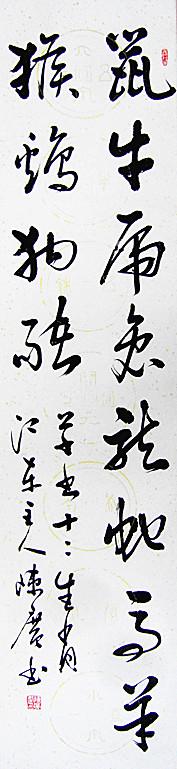 鼠牛虎兔龍蛇馬羊
猴鷄狗豬
草書十二生肖
江東主人陳廣書